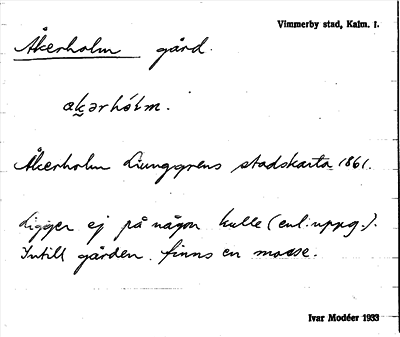 Vimmerby stad, Kalm. l.
Åkerholm gård.
åk̯ərhólm.
Åkerholm Ljunggrens stadskarta 1861.
Ligger ej på någon kulle (enl. uppg.).
Intill gården finns en mosse.
Ivar Modéer 1933